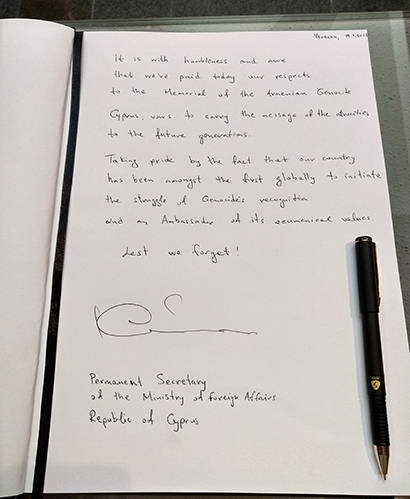 Yerevan,
It is with humbleness and awe
that we've paid today our respects
to the Memorial of the Armenian Genocide
Cyprus, vows to carry the message of the atrocities
to the future generations.
Taking pride by the fact that our country
has been amongst the first globally to initiate
the struggle of Genocide's recognition
and an Ambassador of its ecumenical values.
Lest we forget!
Permanent Secretary
of the Ministry of Foreign Affairs
Republic of Cyprus